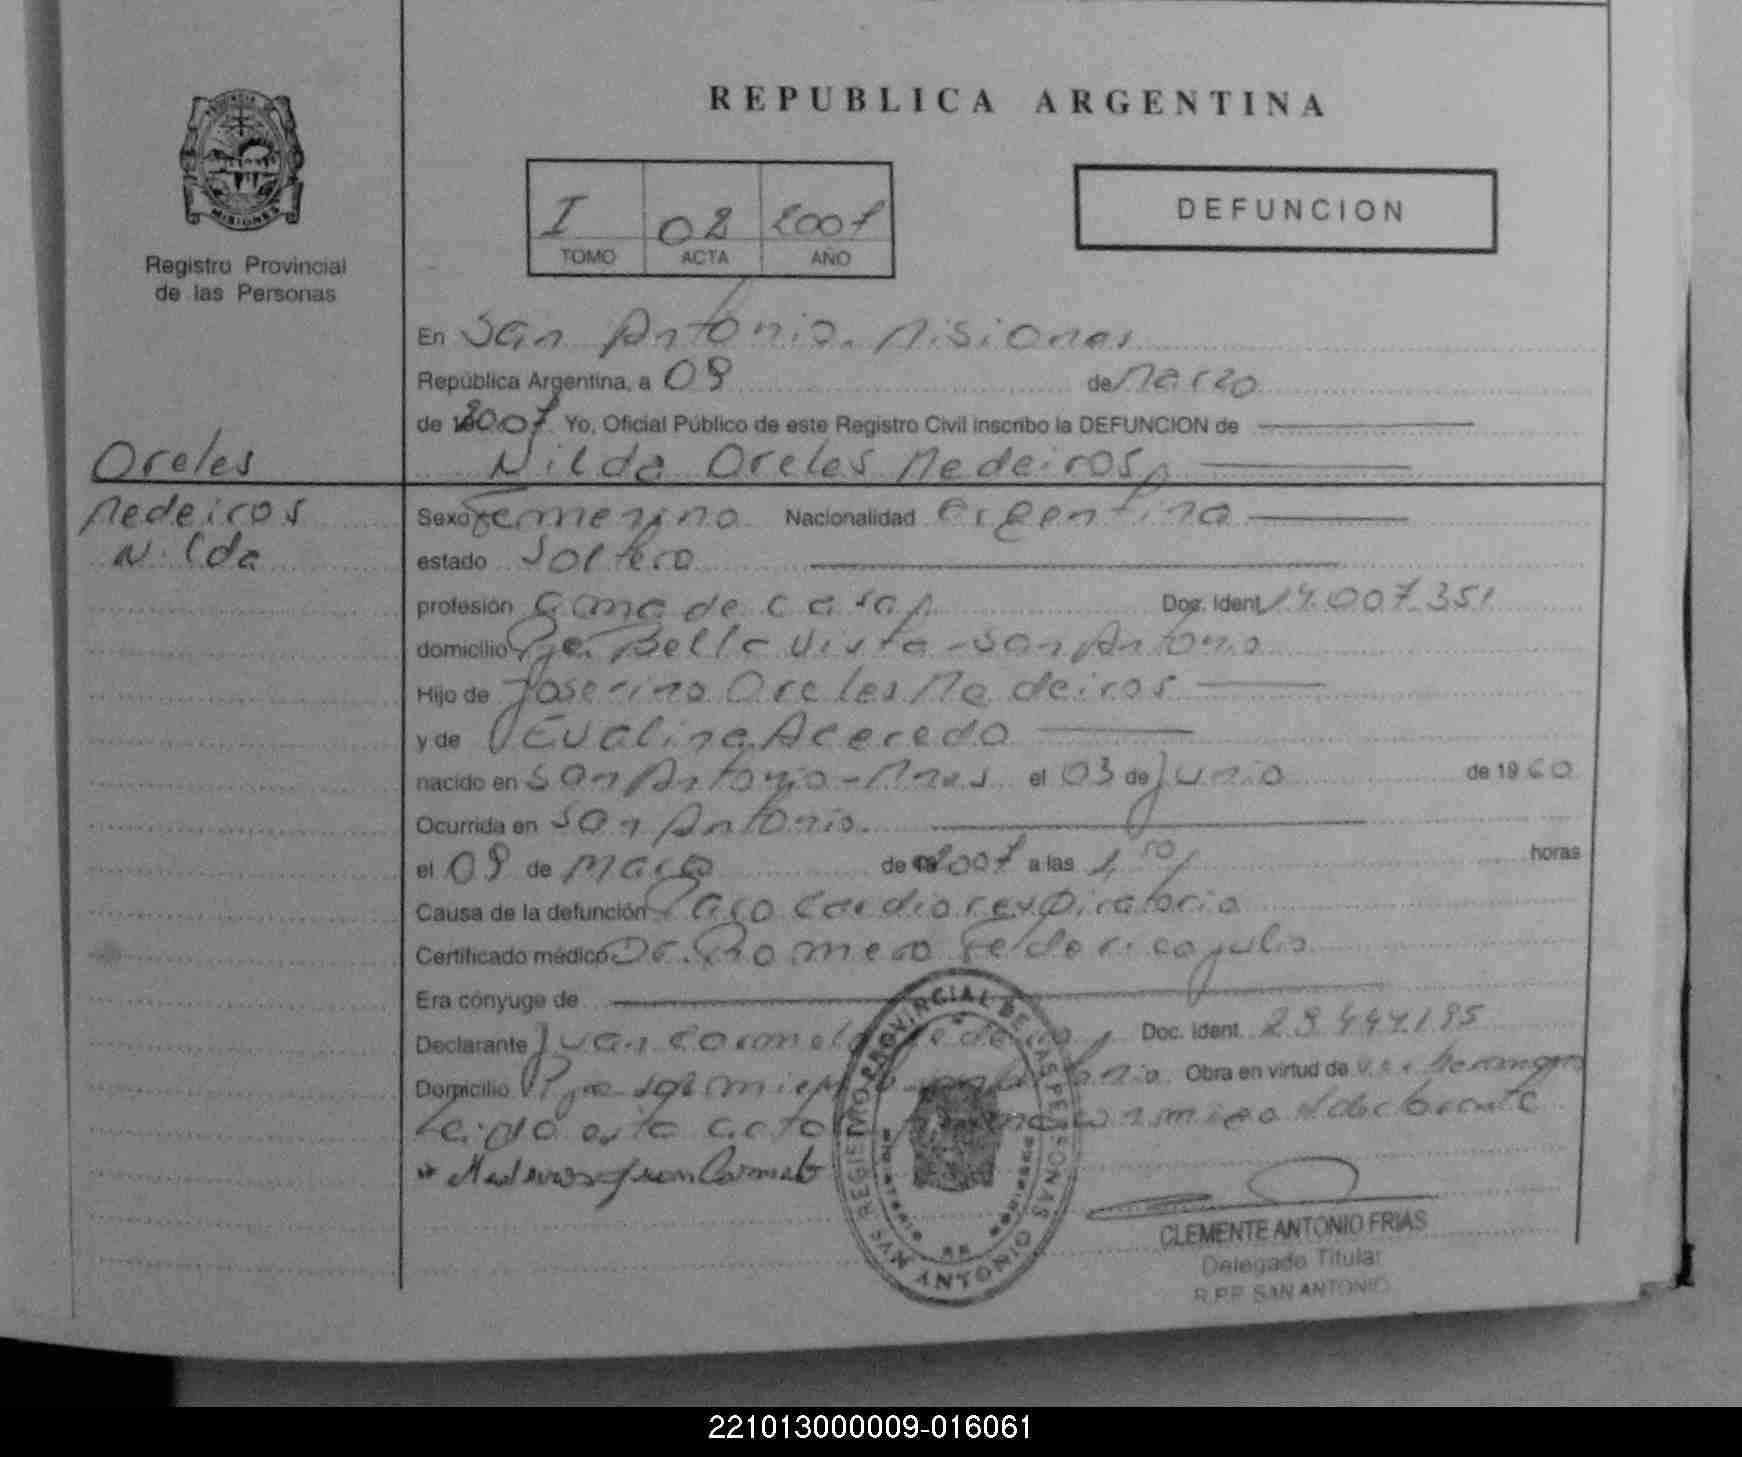 REPUBLICA ARGENTINA
PROVINCIA DE
MISIONES
Registro Provincial
de las Personas
I 02 2007
TOMO ACTA AÑO
DEFUNCION
En San Antonio. Misiones
República Argentina, a 09 de Marzo
de 2007 Yo, Oficial Público de este Registro Civil inscribo la DEFUNCION de
Nilda Oreles Medeiros
Oreles
Medeiros
Nilda
Sexo Femenino Nacionalidad Argentina
estado Soltera
profesión ama de casa Doc. Ident 14.007.351
domicilio Pje. Bella Vista - San Antonio
Hijo de Joserino Oreles Medeiros
y de Evalina Acevedo
nacido en San Antonio - Mnes el 03 de Junio de 1960
Ocurrida en San Antonio.
el 09 de Marzo de 2007 a las 1, horas
Causa de la defunción Paro Cardiorespiratorio
Certificado médico Dr. Romero Federico Julio
Era cónyuge de
Declarante Juan Carmelo Doc. Ident. 29.447.195
Domicilio Pje San Antonio Obra en virtud de hermano
Leido esta acta firma conmigo el declarante
Medeiros Juan Carmelo
REGISTRO PROVINCIAL DE LAS PERSONAS
SAN ANTONIO
CLEMENTE ANTONIO FRIAS
Delegado Titular
R.P.P. SAN ANTONIO
221013000009-016061